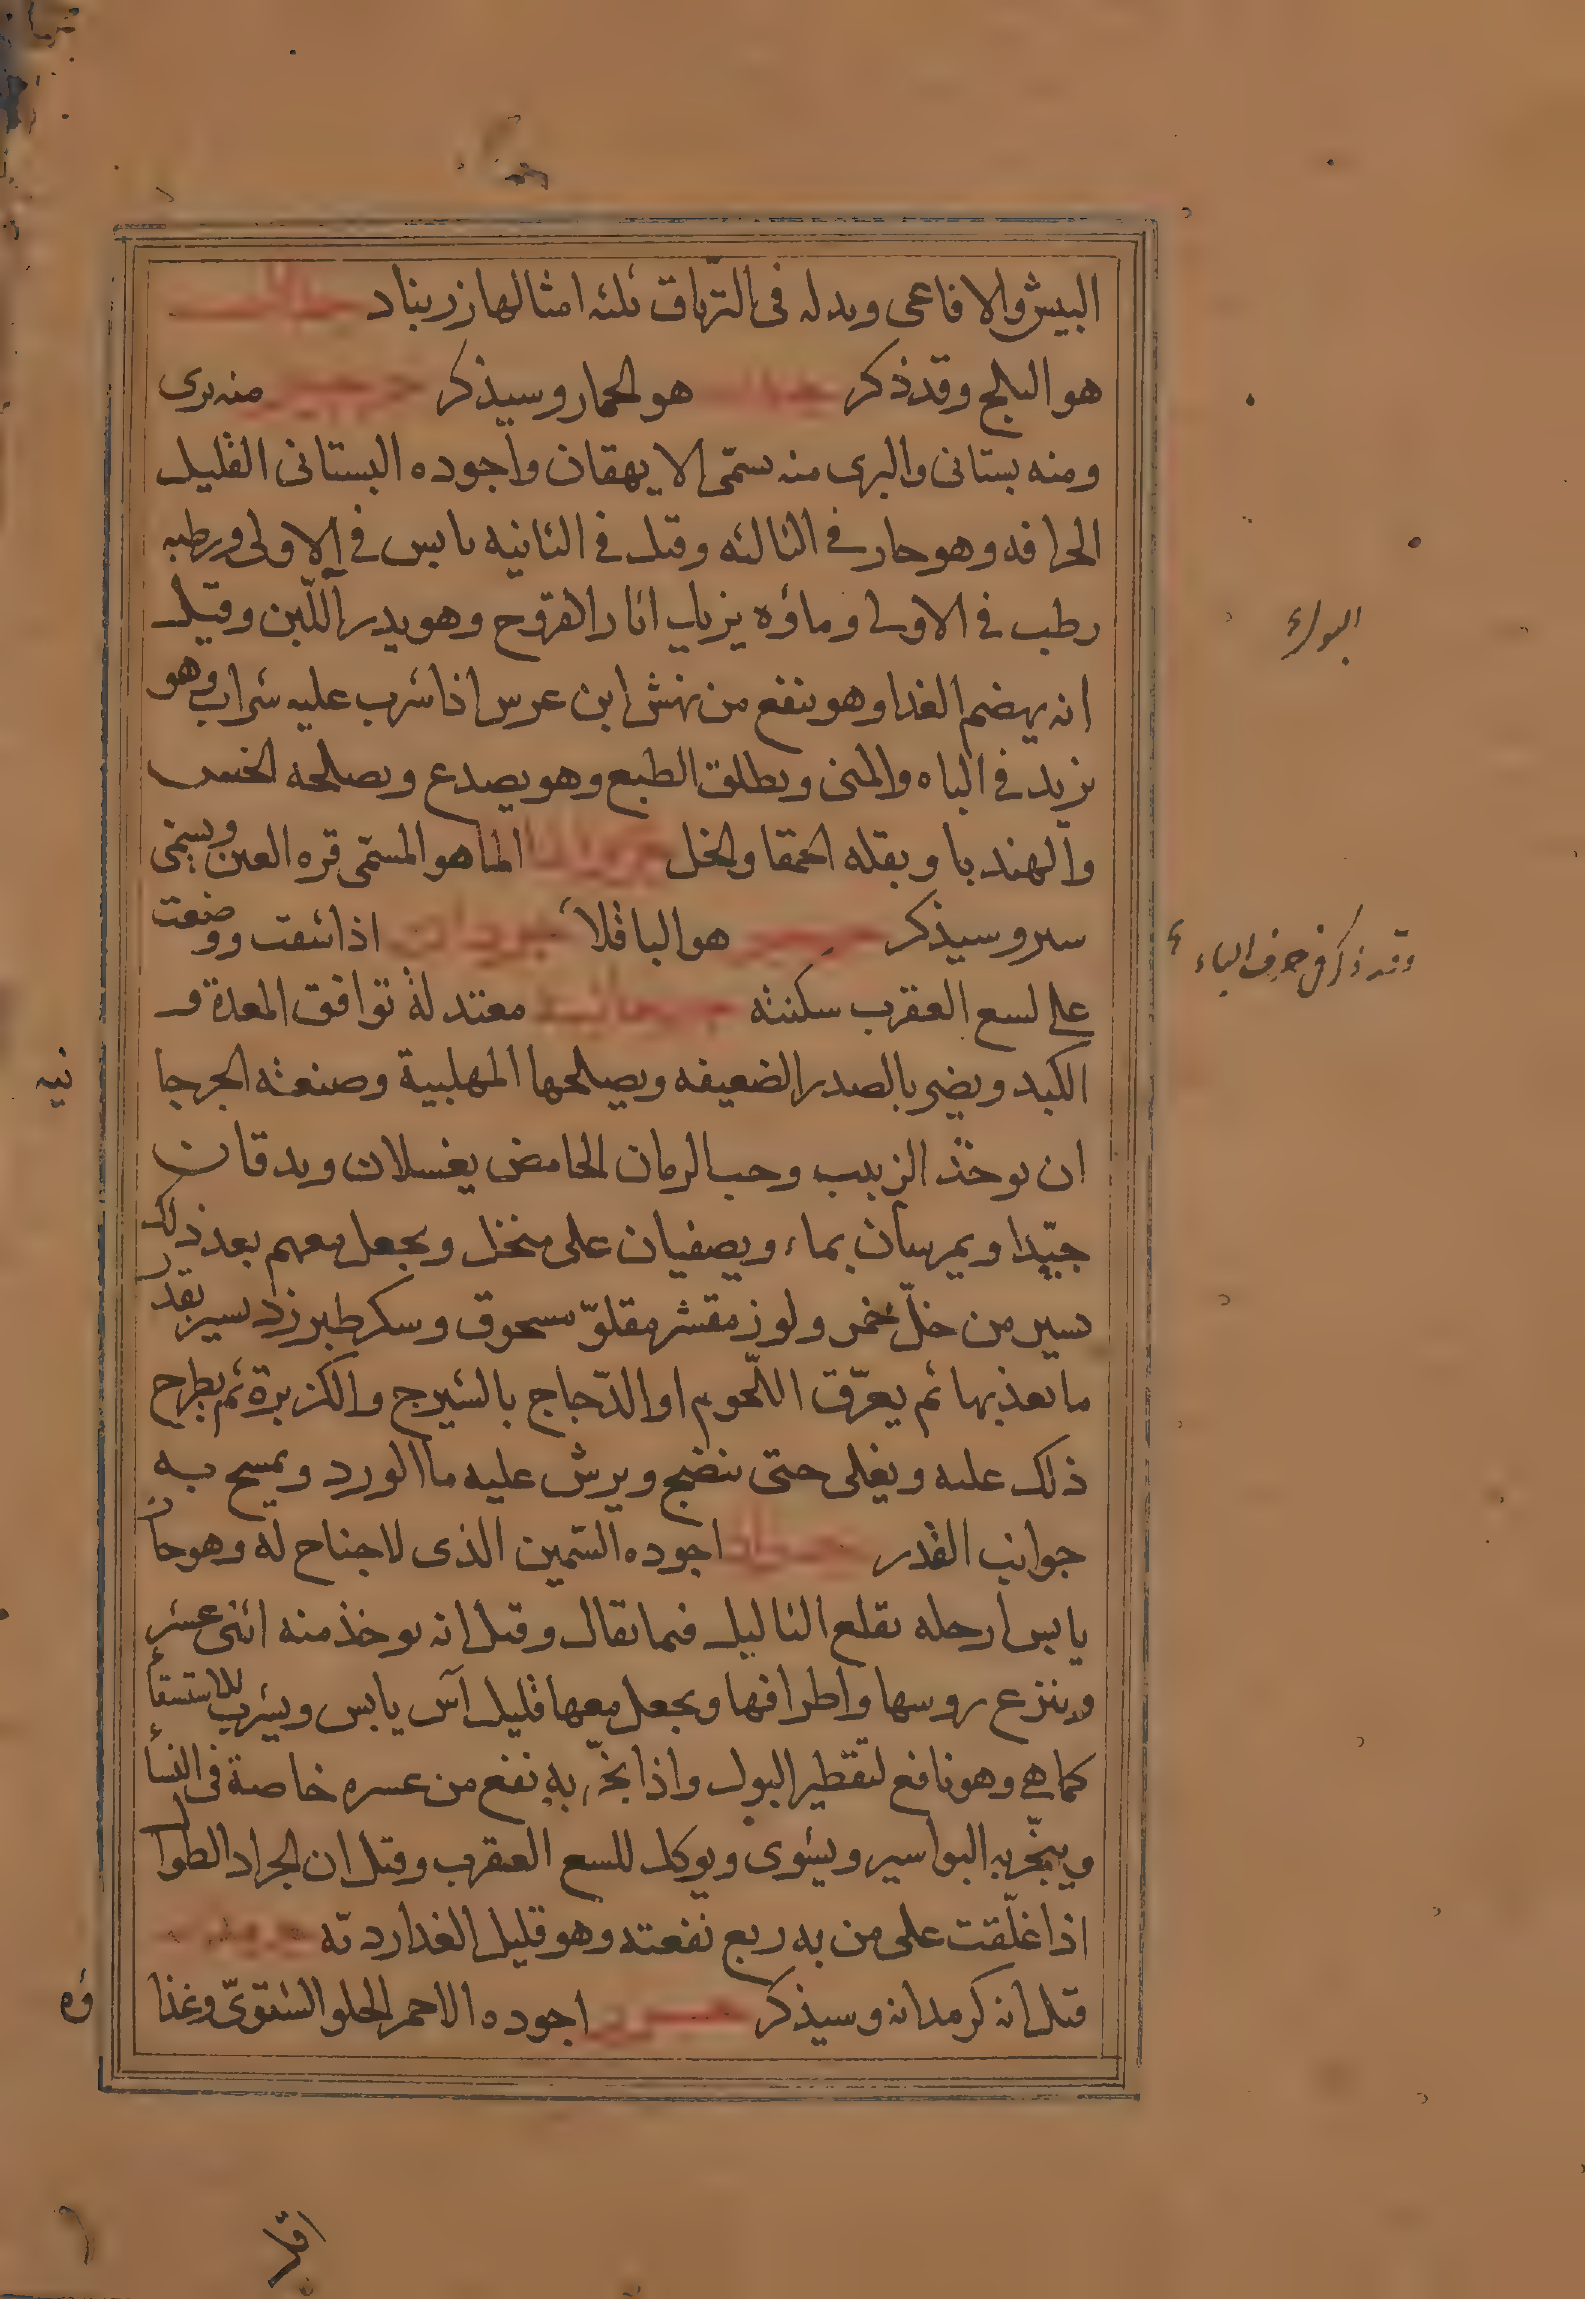 البيش والافاعى وبدله فى الترياق ثلثه امثالها زرنباد
هو البلح وقد ذكر هو الخمار وسيذكر منه برى
ومنه بستانى والبرى منه يسمّى الايهقان وأجوده البستانى القليل
الحرافه وهو حار فى الثالثه وقيل فى الثانيه يابس فى الاولى ورطبه
رطب فى الاولى وماؤه يزيل اثار القروح وهو يدر اللّبن وقيل
انه يهضم الغدا وهو ينفع من نهش ابن عرس اذا شرب عليه شراب وهو
يزيد فى الباه والمنى ويطلق الطبع وهو يصدع ويصلحه الخس
والهندبا وبقله الحمقا والخل جرجير الما هو المسمّى قره العين ويسمى
سير وسيذكر هو الباقلا اذا شقت ووضعت
على لسع العقرب سكنته معتدلة توافق المعدة و
الكبد ويضر بالصدر الضعيفه ويصلحها المهلبية وصنعته الجرجا
نيه
ان يوخذ الزبيب وحب الرمان الحامض يغسلان ويدقان
جيّدا ويمرسان بماء ويصفيان على منخل ويجعل معهم بعد ذلك
يسير من خلّ خمر ولوز مقشر مقلوّ مسحوق وسكر طبرزد يسير بقدر
ما يعذبها ثم يعرّق اللّحوم او الدّجاج بالشيرج والكزبرة ثم يطرح
ذلك عليه ويغلى حتى ينضج ويرش عليه ما الورد ويمسح به
جوانب القدر جراد اجوده السّمين الذى لا جناح له وهو حار
يابس ارجله تقلع الثاليل فيما يقال وقيل انه يوخذ منه اثنى عشر
وينزع روسها واطرافها ويجعل معها قليل آس يابس ويشرب للاستسقأ
كما هى وهو نافع لتقطير البول واذا بخّر به نفع من عسره خاصة فى النسأ
ويبخّر به البواسير ويشوى ويوكل للسع العقرب وقيل ان الجراد الطوال
اذا علّقت على من به ربع نفعته وهو قليل الغدا رديّه
قيل انه كرمدانه وسيذكر جزر اجوده الاحمر الحلو الشتوىّ وغذا
ؤه
وقد ذكر فى حرف الباء